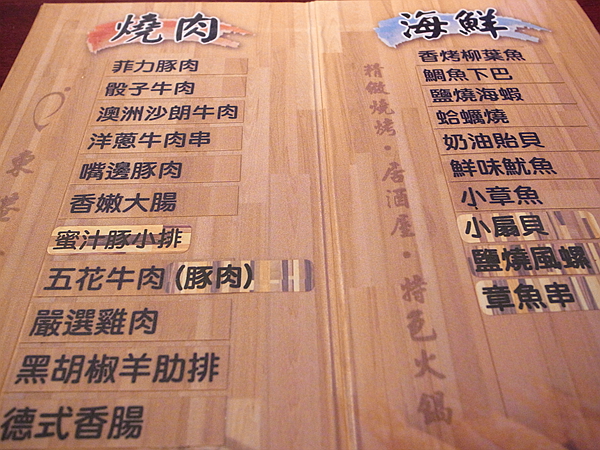 燒肉
菲力豚肉
骰子牛肉
澳洲沙朗牛肉
洋蔥牛肉串
嘴邊豚肉
香嫩大腸
蜜汁豚小排
五花牛肉(豚肉)
嚴選雞肉
黑胡椒羊肋排
德式香腸
海鮮
香烤柳葉魚
鯛魚下巴
鹽燒海蝦
蛤蠣燒
奶油貽貝
鮮味魷魚
小章魚
小扇貝
鹽燒風螺
章魚串
精緻燒烤·居酒屋·特色火鍋